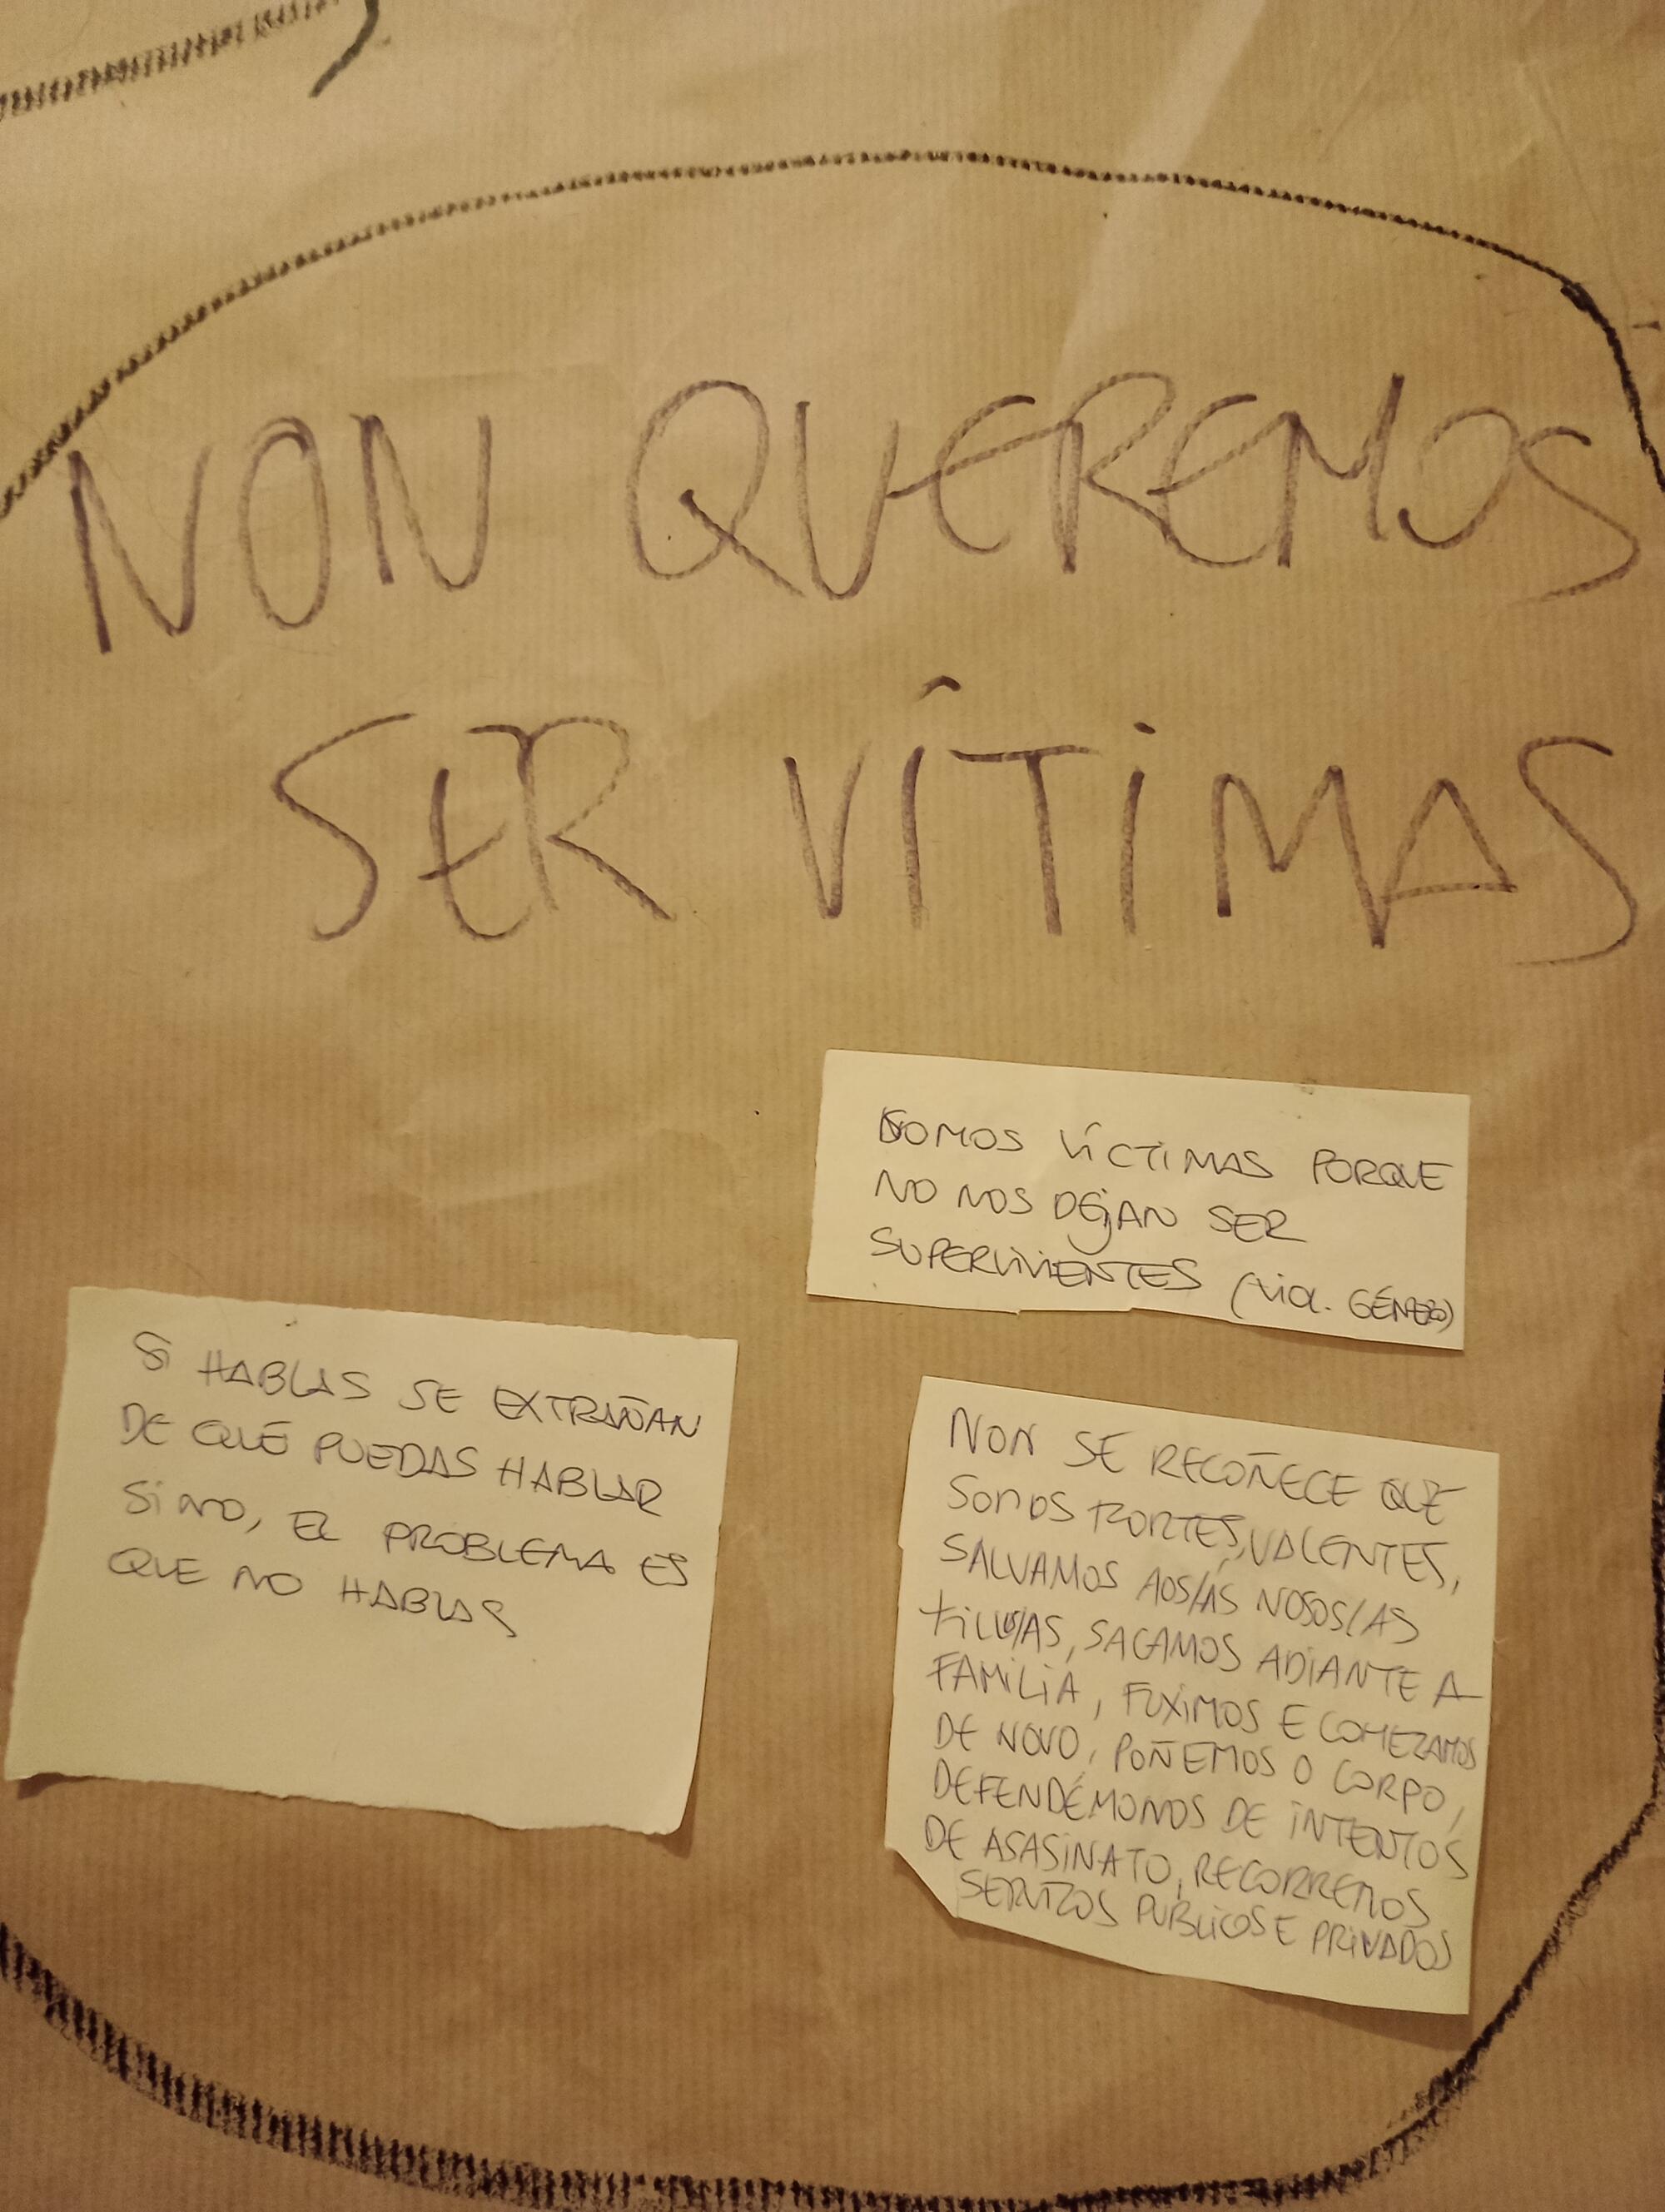 NON QUEREMOS
SER VÍTIMAS
SOMOS VÍCTIMAS PORQUE
NO NOS DEJAN SER
SUPERVIVIENTES (VIOL. GÉNERO)
SI HABLAS SE EXTRAÑAN
DE QUE PUEDAS HABLAR
SI NO, EL PROBLEMA ES
QUE NO HABLAS
NON SE RECOÑECE QUE
SOMOS FORTES, VALENTES,
SALVAMOS AOS/ÁS NOSOS/AS
FILLOS/AS, SACAMOS ADIANTE A
FAMILIA, FUXIMOS E COMEZAMOS
DE NOVO, POÑEMOS O CORPO,
DEFENDÉMONOS DE INTENTOS
DE ASASINATO, RECORREMOS
SERVIZOS PÚBLICOS E PRIVADOS